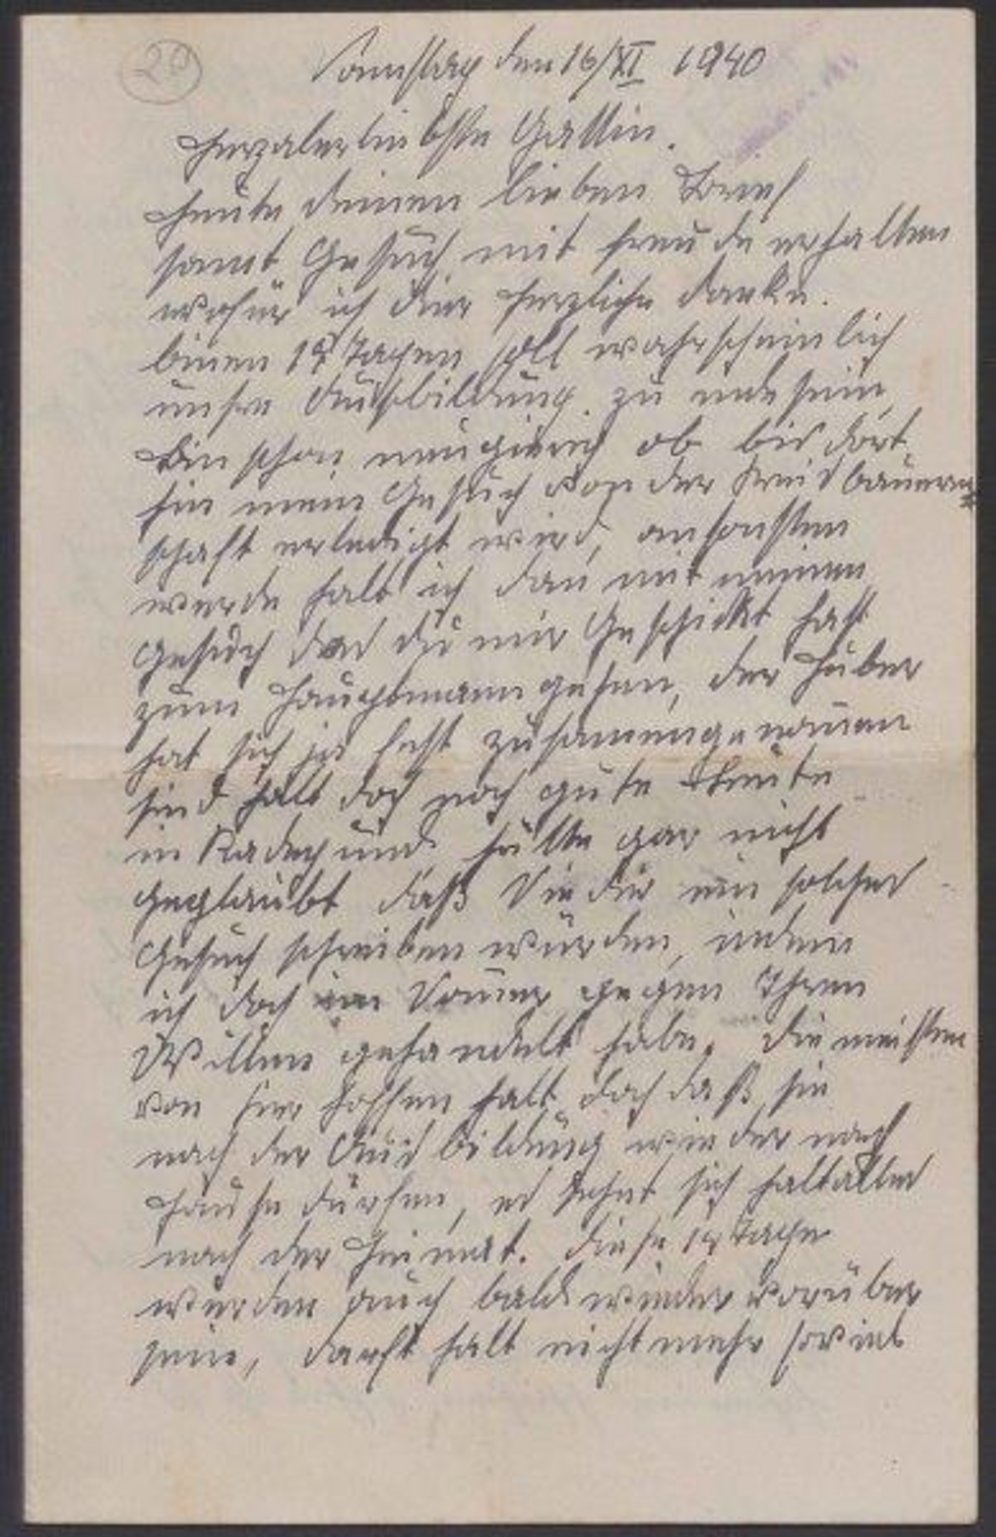 20
Samstag den 16/XI 1940
Herzalerliebste Gattin.
Heute deinen lieben Brief
samt Gesuch mit freude erhalten
wofür ich dier herzliche danke.
binen 14 Tagen soll wahrscheinlich
unsre Ausbildung zu ende sein,
Bin schon neugierig ob bis dort
hin mein Gesuch von der Kreisbauern=
schaft erledigt wird, ansonsten
werde halt ich dan mit meinen
Gesuch das du mir Geschickt hast
zum Hauptmann gehen, der Huber
hat sich ja fest zusamengenomen
sind halt doch noch gute Leute
in Radegund hätte gar nicht
geglaubt daß Sie dir ein solches
Gesuch schreiben würden, indem
ich doch im Somer gegen Ihren
Willen gehandelt habe. die meisten
von hier hoffen halt doch daß sie
nach der Ausbildung wieder nach
Hause dürfen, es sehnt sich halt alles
nach der Heimat. diese 14 Tage
werden auch bald wieder vorüber
sein, darfst halt nicht mehr soviel